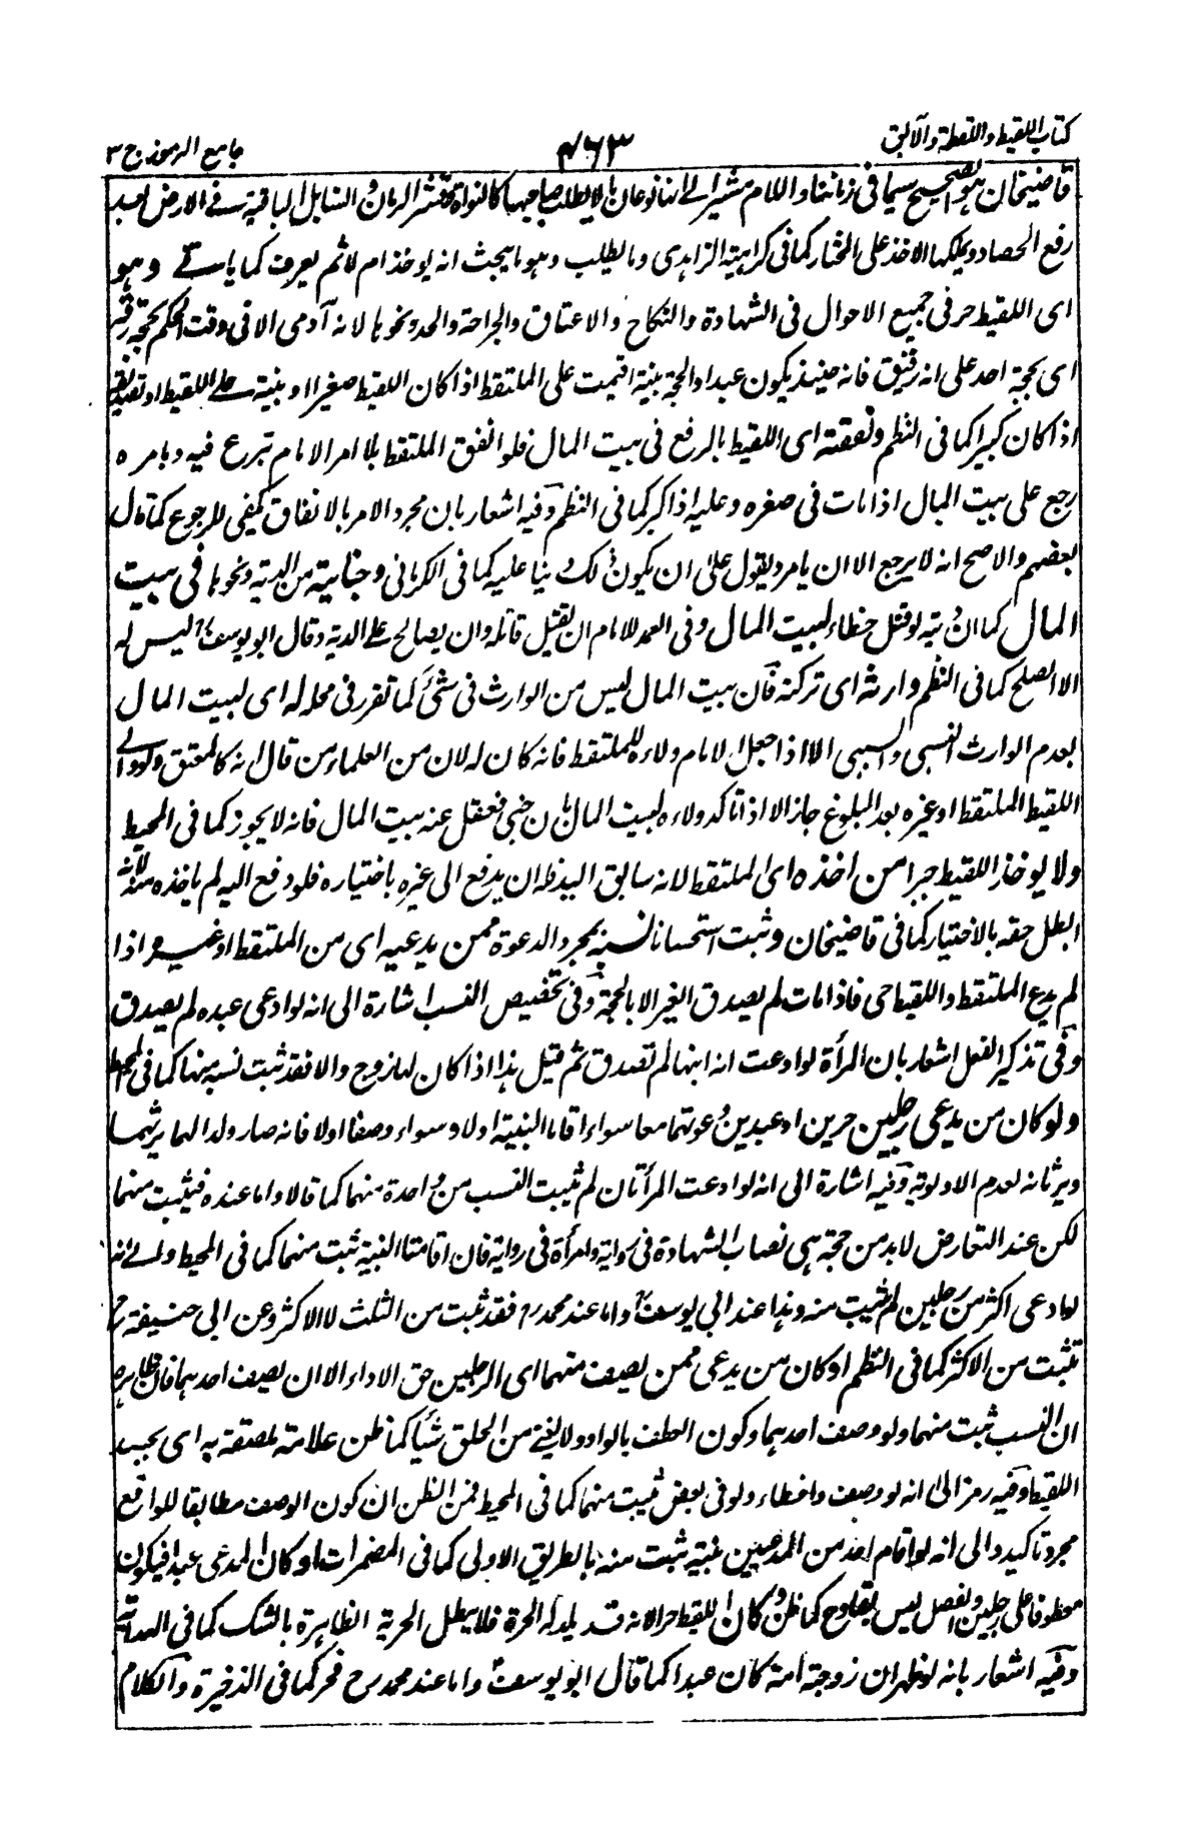 كتاب اللقيط واللقطة والآبق
٤٦٣
جامع الرموز ج ٣
قاضيخان هو الصحيح سيما في زماننا واللام مشير الى انها نوعان ما لا يطلب صاحبها كالنواة وقشر الرمان والسنابل الباقية في الارض بعد
رفع الحصاد ويملكها الاخذ على المختار كما في كراهية الزاهدي وما يطلب وهو ما يبحث انه يوخذ ام لا ثم يعرف كما ياتي وهو
اى اللقيط حر في جميع الاحوال في الشهادة والنكاح والاعتاق والجراحة والحد ونحوها لانه آدمى الا في وقت الحكم بحجة رقه
اى بحجة احد على انه رقيق فانه حينئذ يكون عبدا والحجة بينة اقيمت على الملتقط اذا كان اللقيط صغيرا او بينة على اللقيط او تصديقه
اذا كان كبيرا كما في النظم ونفقته اى اللقيط بالرفع في بيت المال فلو انفق الملتقط بلا امر الامام تبرع فيه وبامره
رجع على بيت المال اذا مات في صغره وعليه اذا كبر كما في النظم وفيه اشعار بان مجرد الامر بالانفاق يكفى للرجوع كما قال
بعضهم والاصح انه لا يرجع الا ان يامر ويقول على ان يكون ذلك دينا عليه كما في الكرماني وجنايته من الدية ونحوها في بيت
المال كما ان ديته لو قتل خطاء لبيت المال وفي العمد للامام ان يقتل قاتله وان يصالح على الدية وقال ابو يوسف ليس له
الا الصلح كما في النظم وارثه اى تركته فان بيت المال ليس من الوارث في شئ كما تقرر في محله له اى لبيت المال
بعدم الوارث النسبى والسببى الا اذا جعل الامام ولاءه للملتقط فانه كان له لان من العلماء من قال انه كالمعتق ولو والى
اللقيط الملتقط او غيره بعد البلوغ جاز الا اذا تاكد ولاءه لبيت المال بان جنى فعقل عنه بيت المال فانه لا يجوز كما في المحيط
ولا يوخذ اللقيط جبرا من اخذه اى الملتقط لانه سابق اليه فله ان يدفع الى غيره باختياره فلو دفع اليه لم ياخذه منه لانه
ابطل حقه بالاختيار كما في قاضيخان وثبت استحسانا نسبه بمجرد الدعوة ممن يدعيه اى من الملتقط او غيره اذا
لم يدع الملتقط واللقيط حى فاذا مات لم يصدق الغير الا بالحجة وفي تخصيص النسب اشارة الى انه لو ادعى عبده لم يصدق
وفي تذكير الفعل اشعار بان المرأة لو ادعت انه ابنها لم تصدق ثم قيل هذا اذا كان لها زوج والا فقد ثبت نسبه منها كما في المحيط
ولو كان من يدعى رجلين حرين او عبدين دعوتهما معا سواء اقاما البينة اولا وسواء وصفا اولا فانه صار ولدا لهما يرثهما
ويرثانه لعدم الاولوية وفيه اشارة الى انه لو ادعت المرأتان لم يثبت النسب من واحدة منهما كما قالا واما عنده فيثبت منهما
لكن عند التعارض لابد من حجة هى نصاب الشهادة في رواية وامرأة في رواية فان اقامتا البينة ثبت منهما كما في المحيط والى انه
لو ادعى اكثر من رجلين لم يثبت منه وهذا عند ابي يوسف واما عند محمد رح فقد ثبت من الثلث لا الاكثر وعن ابي حنيفة رح
تثبت من الاكثر كما في النظم او كان من يدعى ممن يصف منهما اى الرجلين حق الاداء الا ان يصف احدهما فان ظاهره
ان النسب ثبت منهما ولو وصف احدهما وكون العطف بالواو ولا يغنى من الحلق شيأ كما ظن علامة لمصقة به اى بجسد
اللقيط وفيه رمز الى انه لو وصف واخطاء ولو في بعض ثبت منهما كما في المحيط فمن الظن ان كون الوصف مطابقا للواقع
مجرد تاكيد والى انه لو اقام احد من المدعيين بينة ثبت منه بالطريق الاولى كما في المضمرات او كان المدعى عبدا فيكون
معطوفا على رجلين والفصل ليس بقادح كما ظن وكان اللقيط حرا لانه قد يلد له الحرة فلا يبطل الحرية الظاهرة بالشك كما في الهداية
وفيه اشعار بانه لو ظهر ان زوجته امة كان عبدا كما قال ابو يوسف واما عند محمد رح فحر كما في الذخيرة والكلام